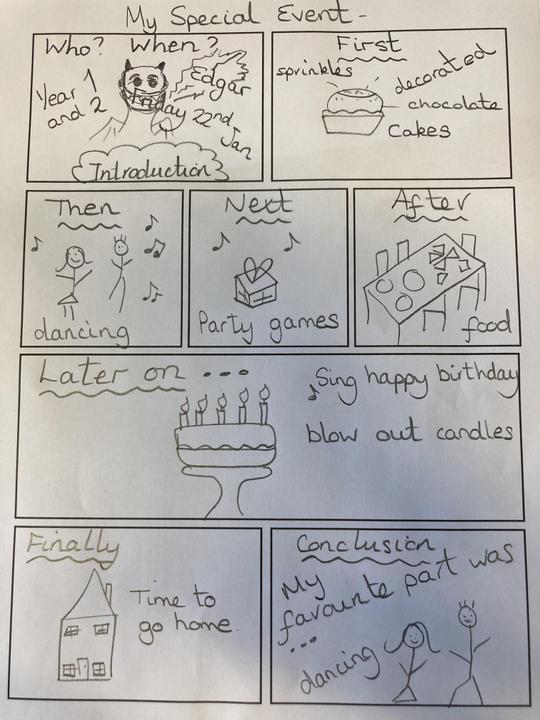 My Special Event -
Who? When?
Year 1
and 2
Edgar
Friday 22nd
Jan
Introduction
First
sprinkles
decorated
chocolate
Cakes
Then
dancing
Next
Party games
After
food
Later on ...
Sing happy birthday
blow out candles
Finally
Time to
go home.
Conclusion
My
favourite part was
...
dancing